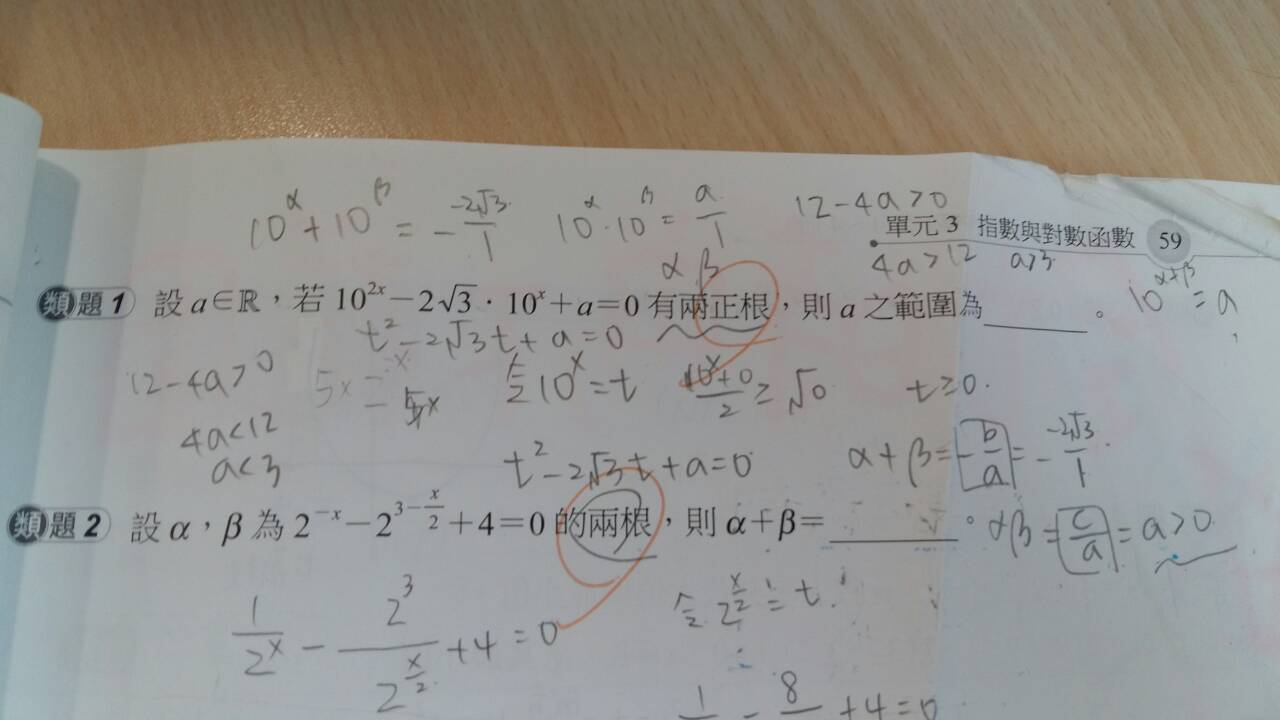 10^α + 10^β = - -2√3/1   10^α · 10^β = a/1   12-4a>0
單元 3 指數與對數函數 59
4a>12   a>3   10^(α+β) = a
α β
類題 1 設 a∈ℝ，若 10^(2x)-2√3 · 10^x+a=0 有兩正根，則 a 之範圍為______。
t²-2√3t+a=0
12-4a>0   令 10^x=t   (10^x+0)/2 ≥ √0   t≥0.
4a<12
a<3   t²-2√3t+a=0   α+β = -b/a = - -2√3/1
類題 2 設 α，β 為 2^(-x)-2^(3-x/2)+4=0 的兩根，則 α+β=______。
αβ = c/a = a>0
令 2^(x/2) = t.
1/2^x - 2³/2^(x/2) + 4 = 0
8
+4=0